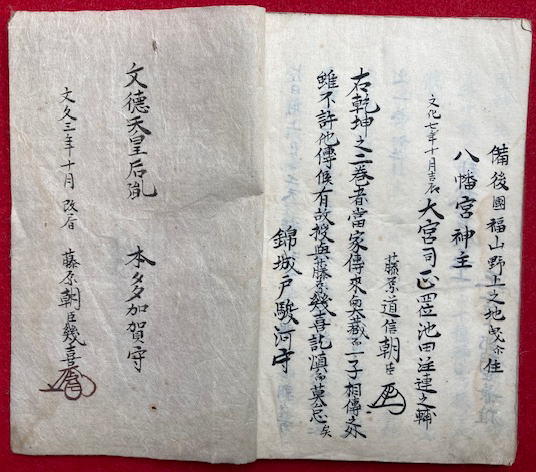 備後國福山野上之地ニ住
八幡宮神主
文化七年十月吉辰 大宮司正四位池田注連之輔
藤原道信朝臣
右乾坤之二巻者當家傳来奥義而一子相傳之外
雖不許他傳候有故授與藤原幾喜訖慎而莫忽矣
錦城戸駿河守
文德天皇后胤 本多加賀守
文久三年十月改居 藤原朝臣幾喜